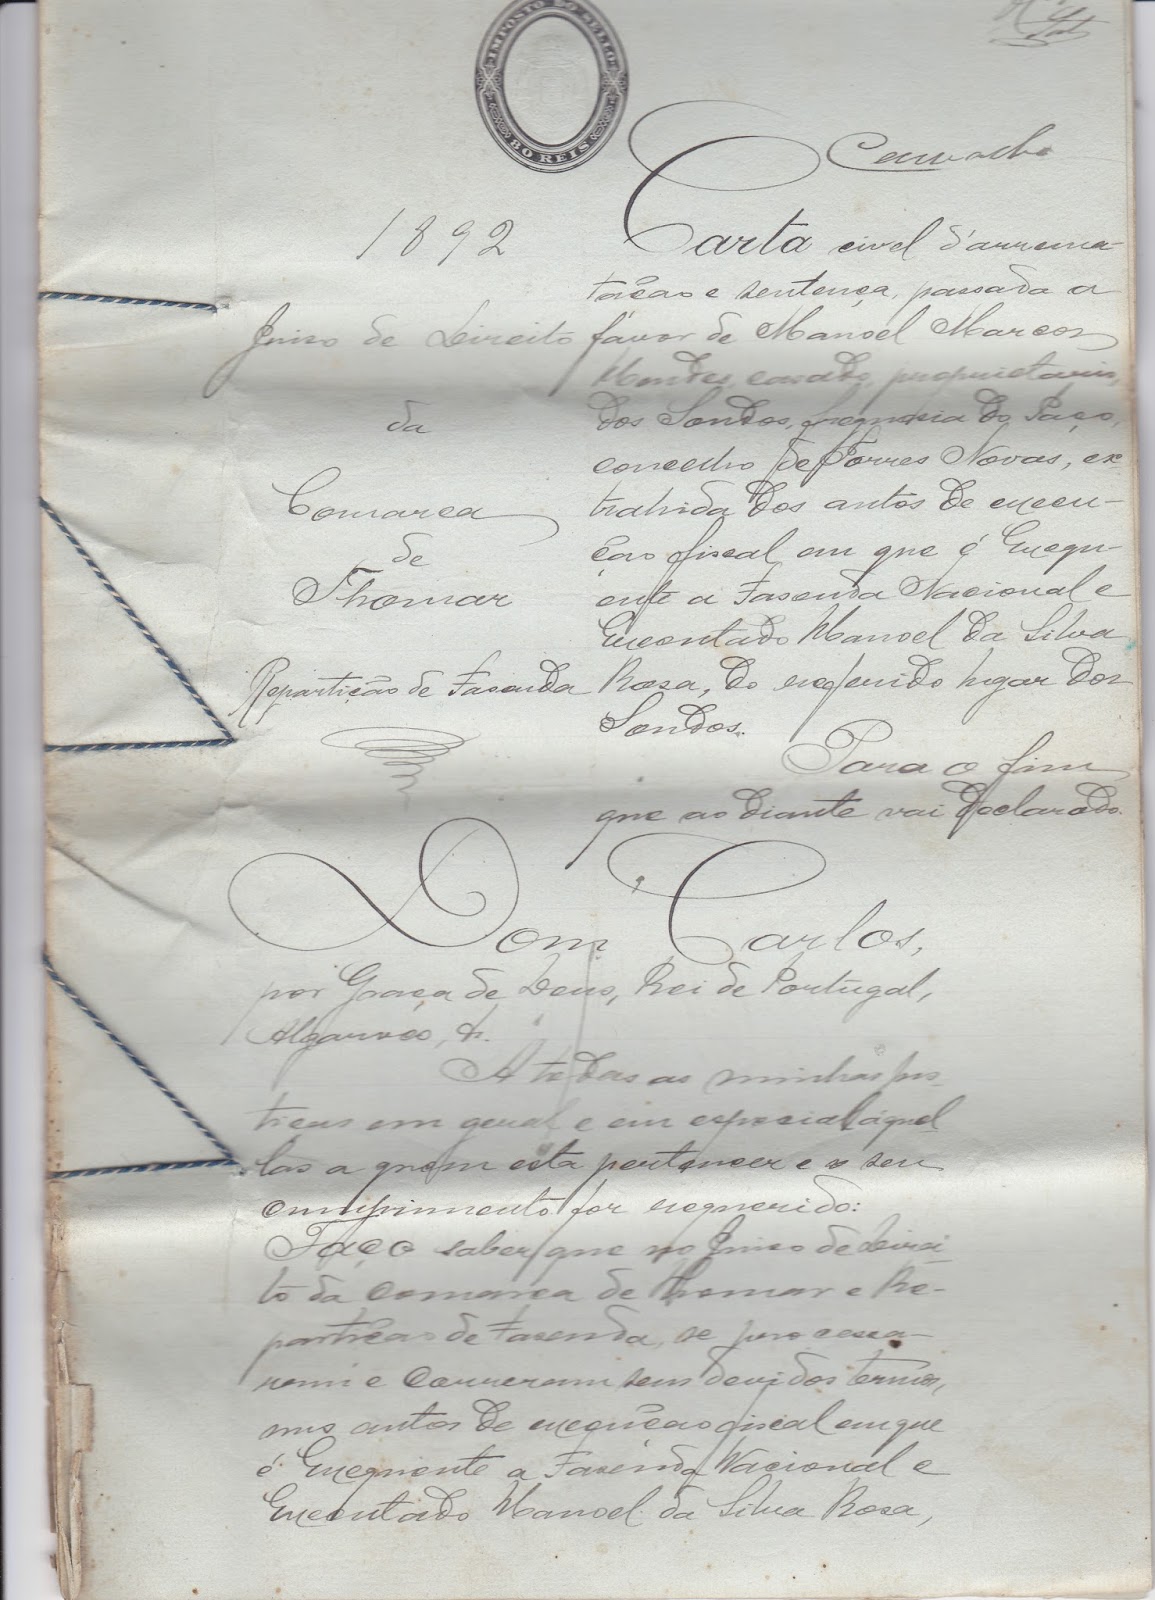 IMPOSTO DO SELLO
80 REIS
Carvalho
1892
Juiso de Direito
da
Comarca
de
Thomar
Repartição de Fasenda
Carta civel d'arrema-
tação e sentença, passada a
favor de Manoel Marcos
Mendes, casado, proprietario,
dos Soudos, freguesia do Paço,
concelho de Torres Novas, ex-
trahida dos autos de execu-
ção fiscal em que é Exequ-
ente a Fasenda Nacional e
Executado Manoel da Silva
Rosa, do referido lugar dos
Soudos.
Para o fim
que ao diante vai declarado.
Dom Carlos,
por Graça de Deus, Rei de Portugal,
Algarves, &.
A todas as minhas jus-
tiças em geral e em especial áquel-
las a quem esta pertencer e o seu
cumprimento for requerido:
Faço saber que no Juiso de Direi-
to da comarca de Thomar e Re-
partição de Fasenda, se processa-
ram e correram seus devidos termos,
uns autos de execução fiscal em que
é Exequente a Fasenda Nacional e
Executado Manoel da Silva Rosa,